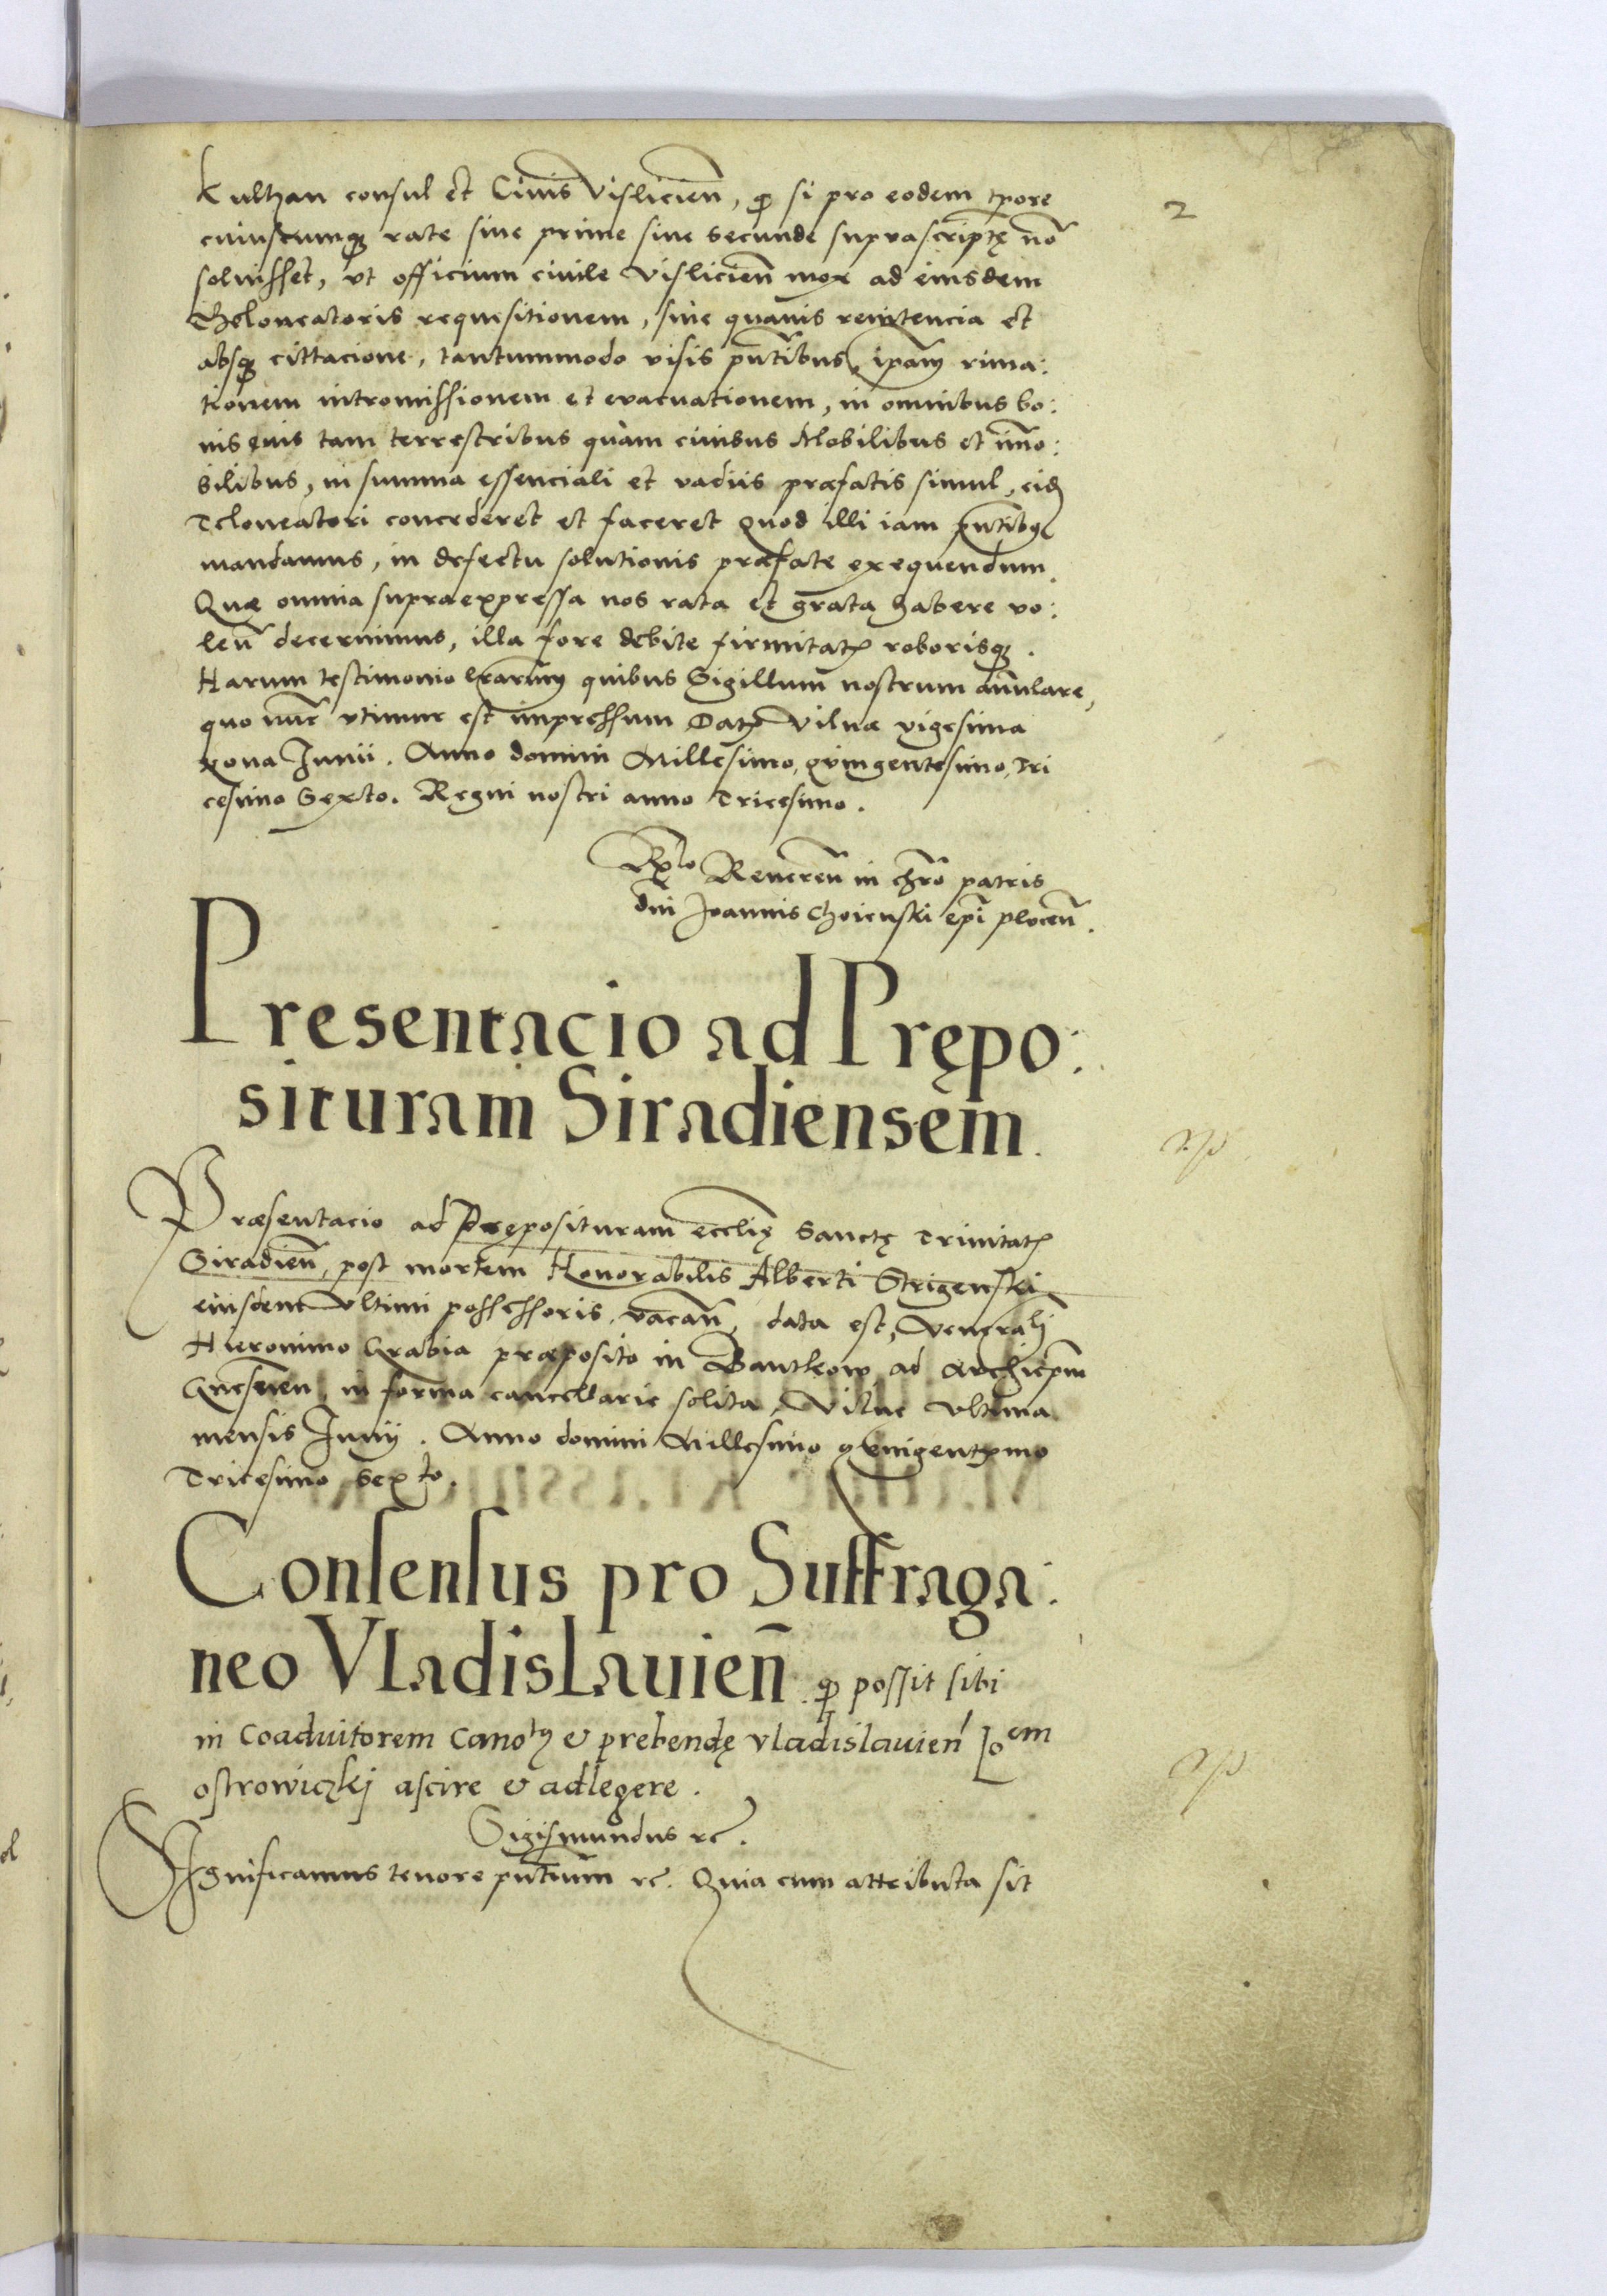 2
Kulhan consul et Ciuis Vislicień, ꝙ si pro eodem tpore
cuiuscumqꝫ rate siue prime siue secunde suprascriptę nō
soluisset, vt officium ciuile Vislicień mox ad eiusdem
Theloneatoris requisitionem, sine quauis renitencia et
absqꝫ cittacione, tantummodo visis pn̄tibus, ipam rima:
tionem intromissionem et euacuationem, in omnibus bo:
nis eius tam terrestribus quàm ciuibus Mobilibus et im̄o:
bilibus, in summa essenciali et vadiis præfatis simul, eidē
Teloneatori concederet et faceret Quod illi iam pn̄tibꝫ
mandamus, in defectu solutionis præfate exequendum.
Quæ omnia supraexpressa nos rata et grata habere vo:
leń decernimus, illa fore debite firmitatꝭ roborisqꝫ.
Harum testimonio lrarum quibus Sigillum nostrum annulare,
quo nunc vtimur est impressum Datꝭ Vilnæ vigesima
nona Junii. Anno domini Millesimo, quingentesimo, Tri
cesimo Sexto. Regni nostri anno Tricesimo.
Rlo Reueren̄ in chrō patris
dn̄i Joannis Choienski ep̄i plocen̄.
Presentacio ad Prępo:
situram Siradiensem.
Præsentacio ad Pręposituram eccl̄ię Sanctę Trinitatꝭ
Siradien̄, post mortem Honorabilis Alberti Strigenski
eiusdem Vltimi possessoris, vacan̄, data est, Venerabl̄i
Hieronimo Grabia præposito in Bantkow ad Archiep̄m
Gnesnen̄, in forma cancellarie solita, Vilne Vltima
mensis Junij. Anno domini Millesimo quingentꝭmo
Tricesimo Sexto.
Consensus pro Suffraga:
neo Vladislauien̄. ꝙ possit sibi
in Coadiutorem Canotꝫ & prebendę Vladislauień Joem
ostrowiczkj ascire & adlegere.
Sigismundus rc̄.
Significamus tenore pn̄tium rc̄. Quia cum attributa sit